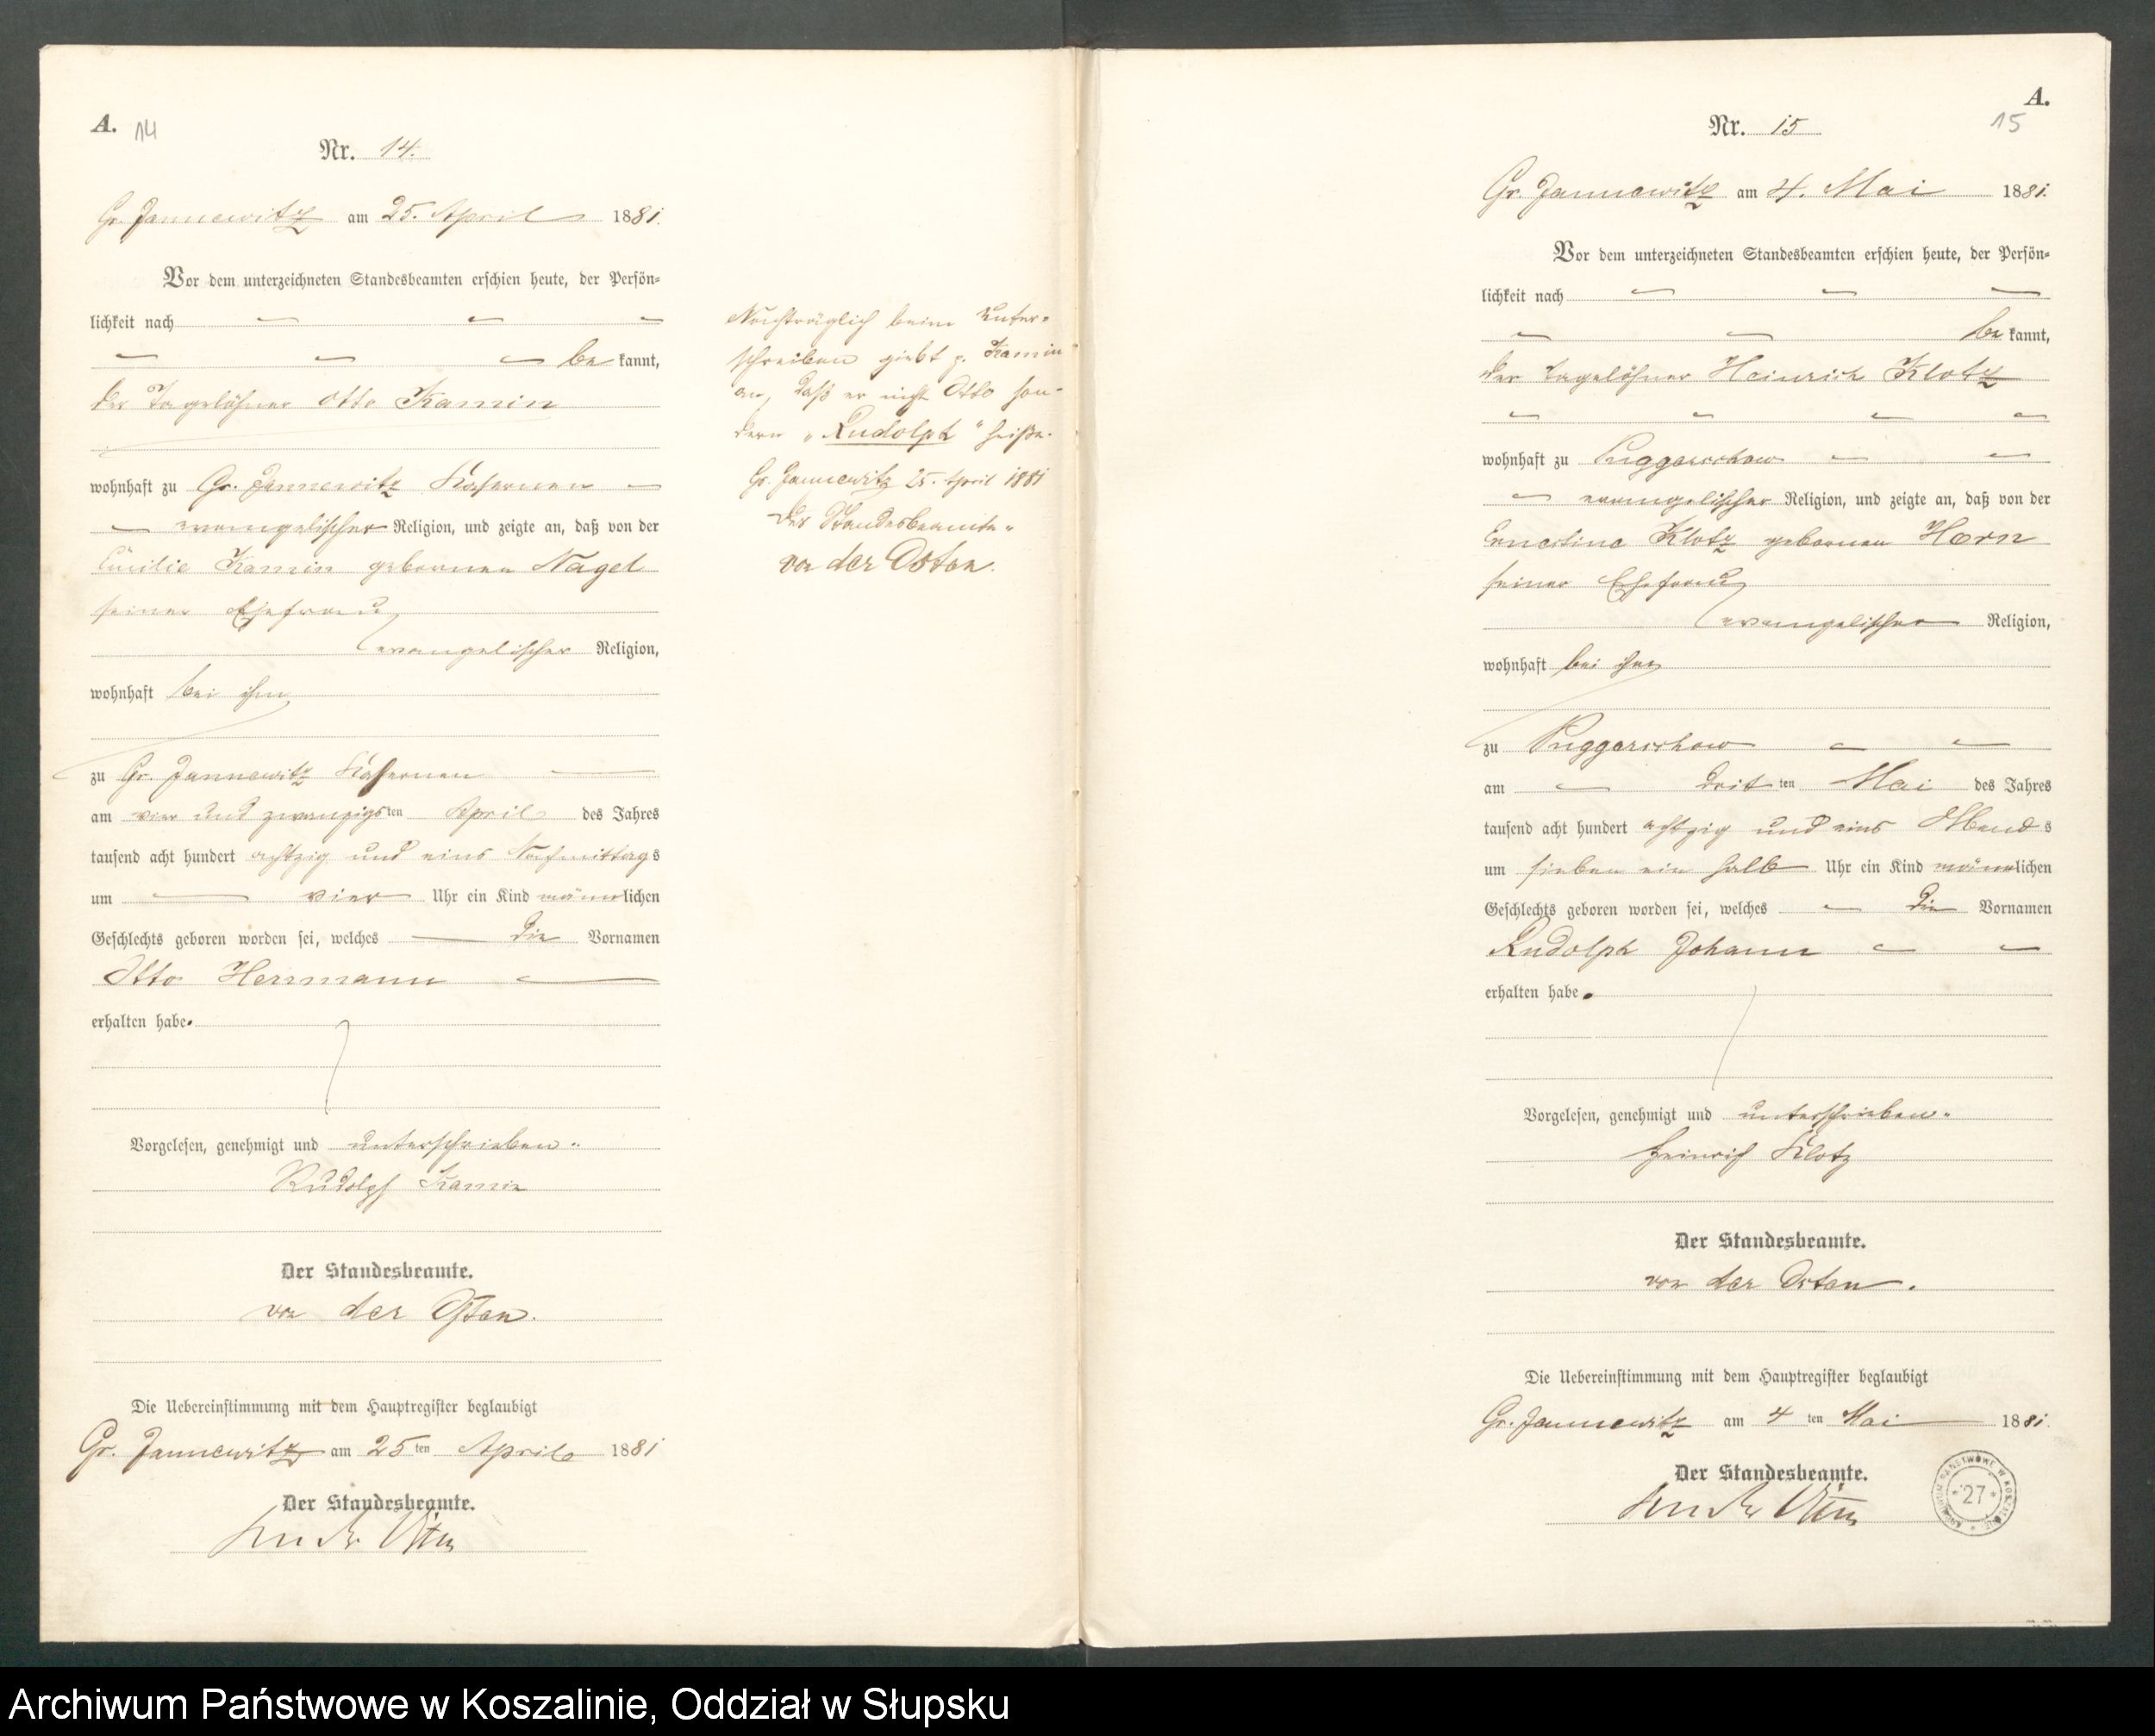 A. 14
Nr. 14.
Gr. Jannewitz am 25. April 1881.
Vor dem unterzeichneten Standesbeamten erschien heute, der Persön-
lichkeit nach
be kannt,
der Tagelöhner Otto Kamin
wohnhaft zu Gr. Jannewitz Kasernen
evangelischer Religion, und zeigte an, daß von der
Emilie Kamin geborenen Nagel
seiner Ehefrau
evangelischer Religion,
wohnhaft bei ihm
zu Gr. Jannewitz Kasernen
am vier und zwanzigsten April des Jahres
tausend acht hundert achtzig und eins Nachmittags
um vier Uhr ein Kind männlichen
Geschlechts geboren worden sei, welches die Vornamen
Otto Herrmann
erhalten habe.
Vorgelesen, genehmigt und unterschrieben.
Rudolph Kamin
Der Standesbeamte.
von der Osten.
Die Uebereinstimmung mit dem Hauptregister beglaubigt
Gr. Jannewitz am 25 ten April 1881
Der Standesbeamte.
von der Osten
Nachträglich beim Unter-
schreiben giebt p. Kamin
an, daß er nicht Otto son-
dern „Rudolph" heiße.
Gr. Jannewitz 25. April 1881
Der Standesbeamte.
von der Osten.
A.
15
Nr. 15
Gr. Jannewitz am 4. Mai 1881.
Vor dem unterzeichneten Standesbeamten erschien heute, der Persön-
lichkeit nach
be kannt,
der Tagelöhner Heinrich Klotz
wohnhaft zu Puggerschow
evangelischer Religion, und zeigte an, daß von der
Ernestine Klotz geborenen Horn
seiner Ehefrau
evangelischer Religion,
wohnhaft bei ihm
zu Puggerschow
am dritten Mai des Jahres
tausend acht hundert achtzig und eins Abends
um sieben ein halb Uhr ein Kind männlichen
Geschlechts geboren worden sei, welches die Vornamen
Rudolph Johann
erhalten habe.
Vorgelesen, genehmigt und unterschrieben.
Heinrich Klotz
Der Standesbeamte.
von der Osten.
Die Uebereinstimmung mit dem Hauptregister beglaubigt
Gr. Jannewitz am 4 ten Mai 1881.
Der Standesbeamte.
von der Osten
ARCHIWUM PAŃSTWOWE W KOSZALINIE
* 27 *
Archiwum Państwowe w Koszalinie, Oddział w Słupsku